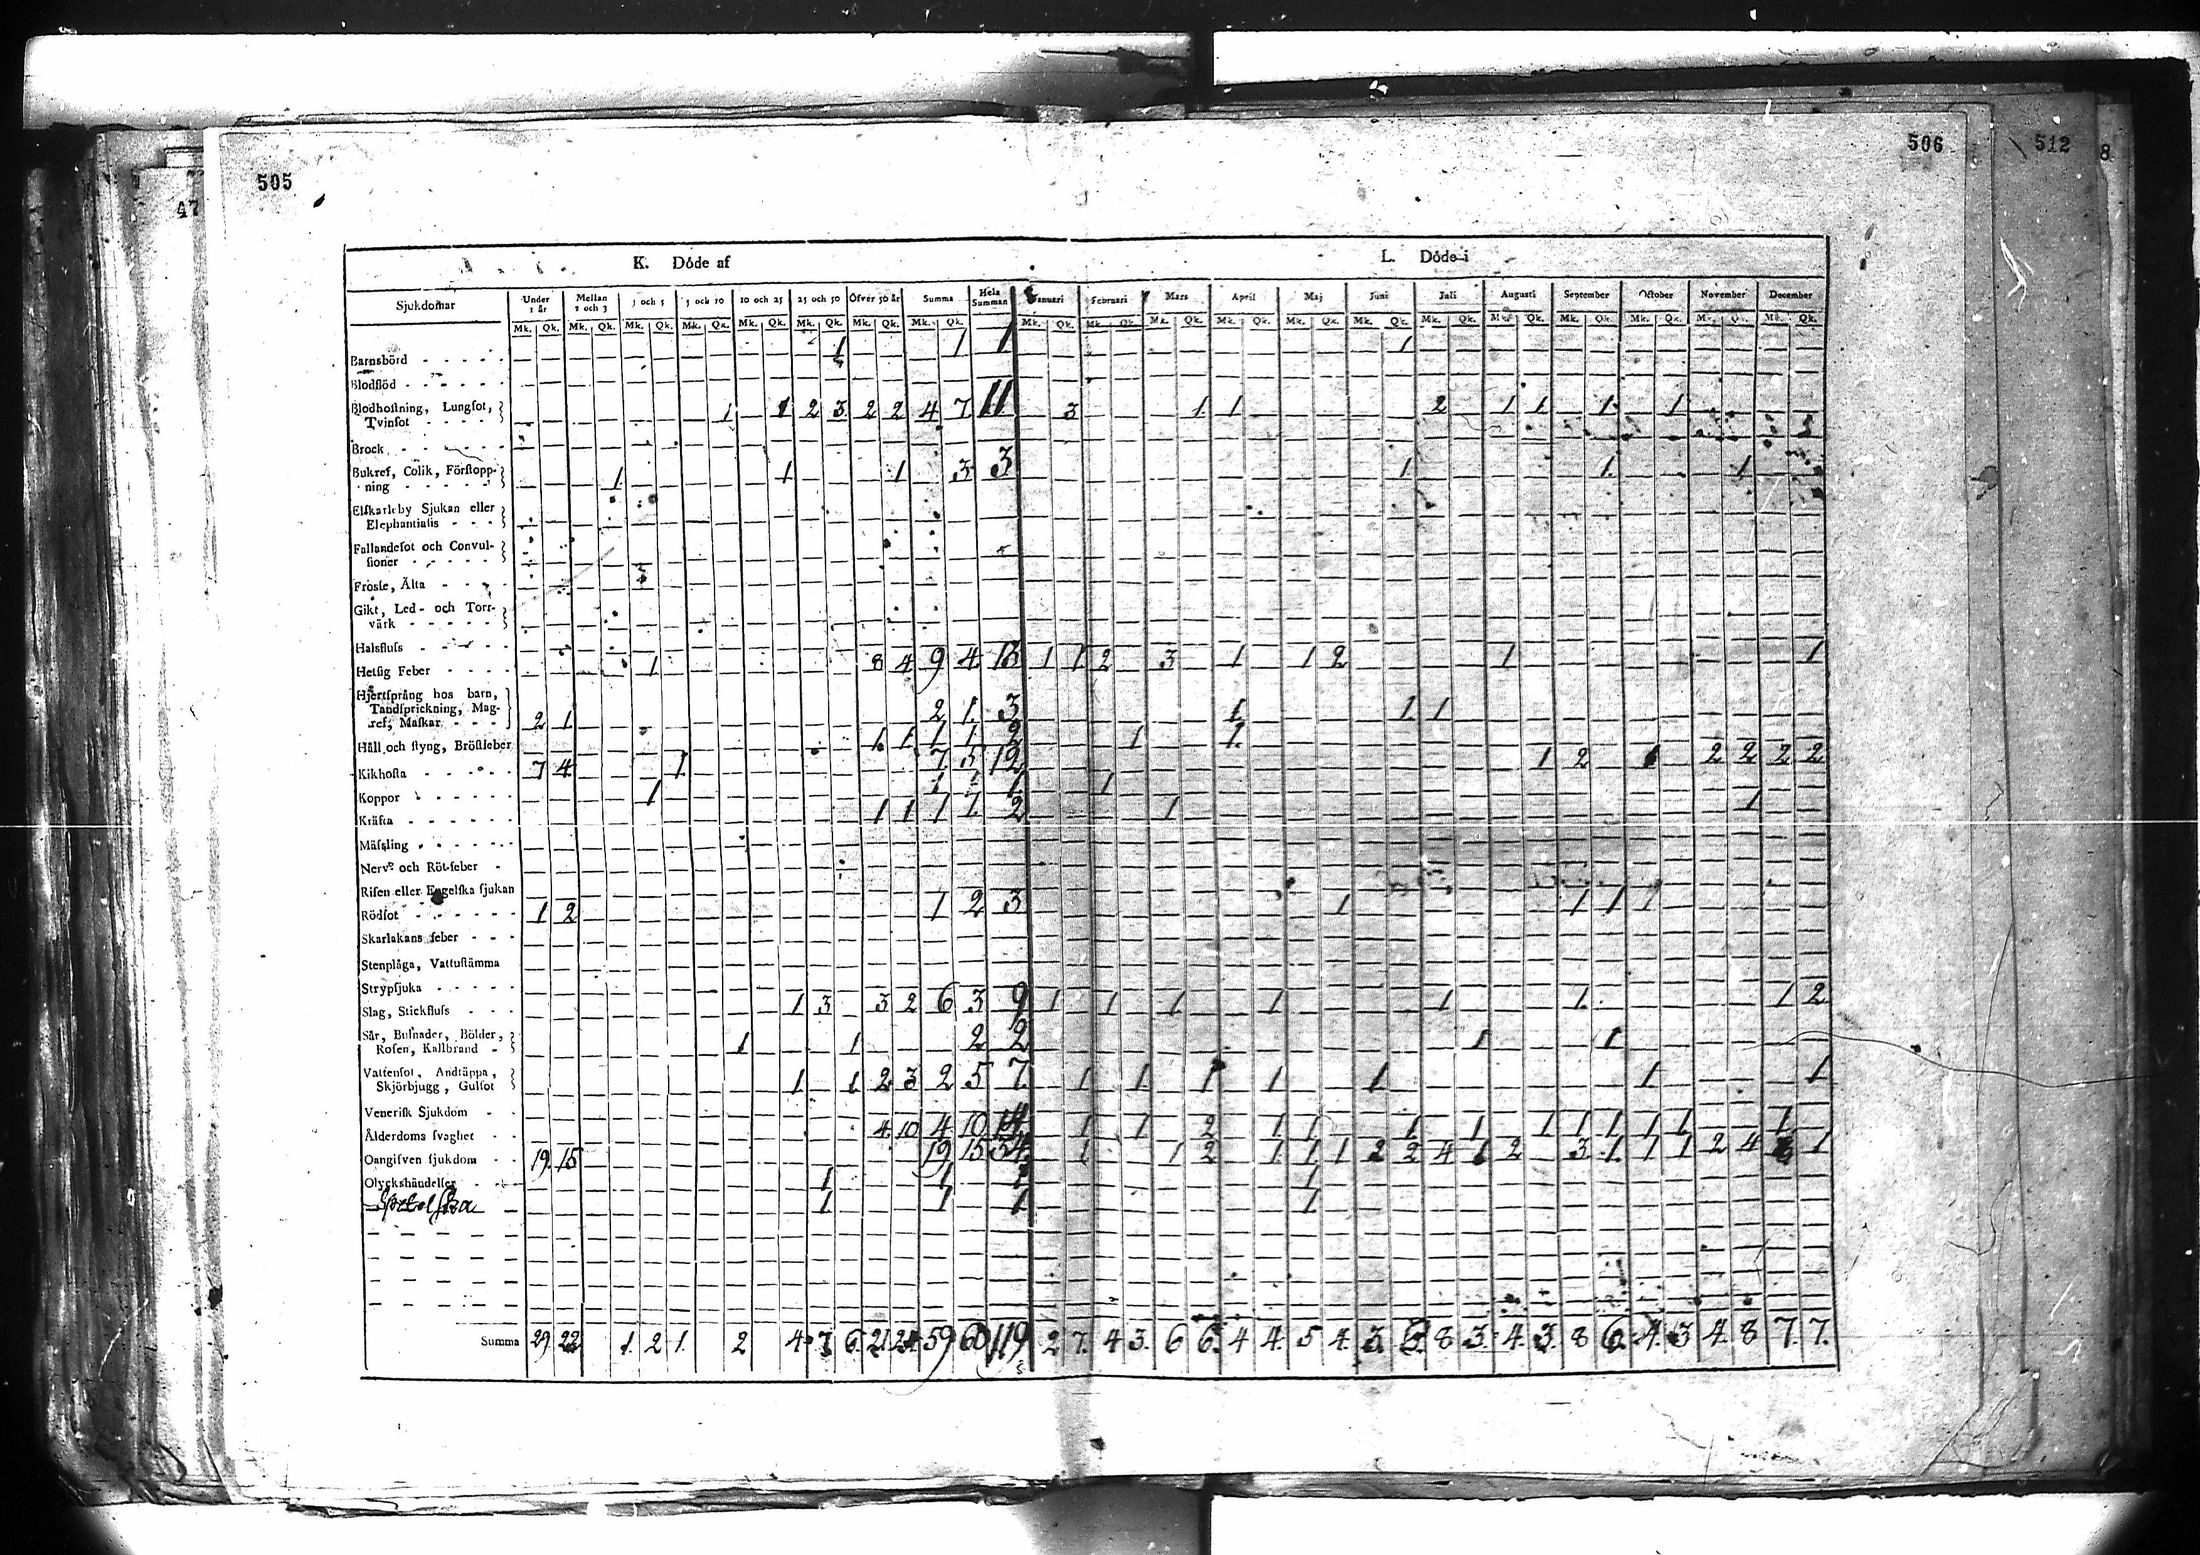 505
506
512
8
47
K. Döde af
L. Döde i
Sjukdomar Under 1 år Mellan 1 och 3 3 och 5 5 och 10 10 och 25 25 och 50 Öfver 50 år Summa Hela Summan Januari Februari Mars April Maj Juni Juli Augusti September October November December
Mk. Qk. Mk. Qk. Mk. Qk. Mk. Qk. Mk. Qk. Mk. Qk. Mk. Qk. Mk. Qk. Mk. Qk. Mk. Qk. Mk. Qk. Mk. Qk. Mk. Qk. Mk. Qk. Mk. Qk. Mk. Qk. Mk. Qk. Mk. Qk. Mk. Qk. Mk. Qk.
Barnsbörd 1 1 1 1
Blodflöd
Blodhoſtning, Lungſot, 1 1 2 3 2 2 4 7 11 3 1 1 2 1 1 1 1
Tvinſot
Brock
Bukref, Colik, Förſtopp- 1 1 1 3 3 1 1 1
ning
Elſkarleby Sjukan eller
Elephantiaſis
Fallandeſot och Convul-
ſioner
Froſſe, Älta
Gikt, Led- och Torr-
värk
Halsfluſs
Hetſig Feber 1 8 4 9 4 13 1 1 2 3 1 1 2 1 1
Hjertſprång hos barn,
Tandſprickning, Mag-
ref, Maſkar 2 1 2 1 3 1 1 1
Håll och ſtyng, Bröſtfeber 1 1 1 1 2 1 1
Kikhoſta 7 4 1 7 5 12 1 2 1 2 2 2 2
Koppor 1 1 1 1
Kräfta 1 1 1 1 2 1 1
Mäſsling
Nerv- och Rötfeber
Riſen eller Engelſka ſjukan
Rödſot 1 2 1 2 3 1 1 1 1
Skarlakans feber
Stenplåga, Vattuſtämma
Strypſjuka
Slag, Stickfluſs 1 3 3 2 6 3 9 1 1 1 1 1 1 1 2
Sår, Bulnader, Bölder, 1 1 2 2 1 1
Roſen, Kallbrand
Vattenſot, Andtäppa, 1 1 2 3 2 5 7 1 1 1 1 1 1 1
Skjörbjugg, Gulſot
Veneriſk Sjukdom
Ålderdoms ſvaghet 4 10 4 10 14 1 1 2 1 1 1 1 1 1 1 1 1 1
Oangifven ſjukdom 19 15 19 15 34 1 1 2 1 1 1 2 2 4 1 2 3 1 1 1 2 4 1
Olyckshändelſer 1 1 1 1
Spetelſka 1 1 1 1
Summa 29 22 1 2 1 2 4 7 6 21 24 59 60 119 2 7 4 3 6 6 4 4 5 4 3 6 8 3 4 3 8 6 4 3 4 8 7 7